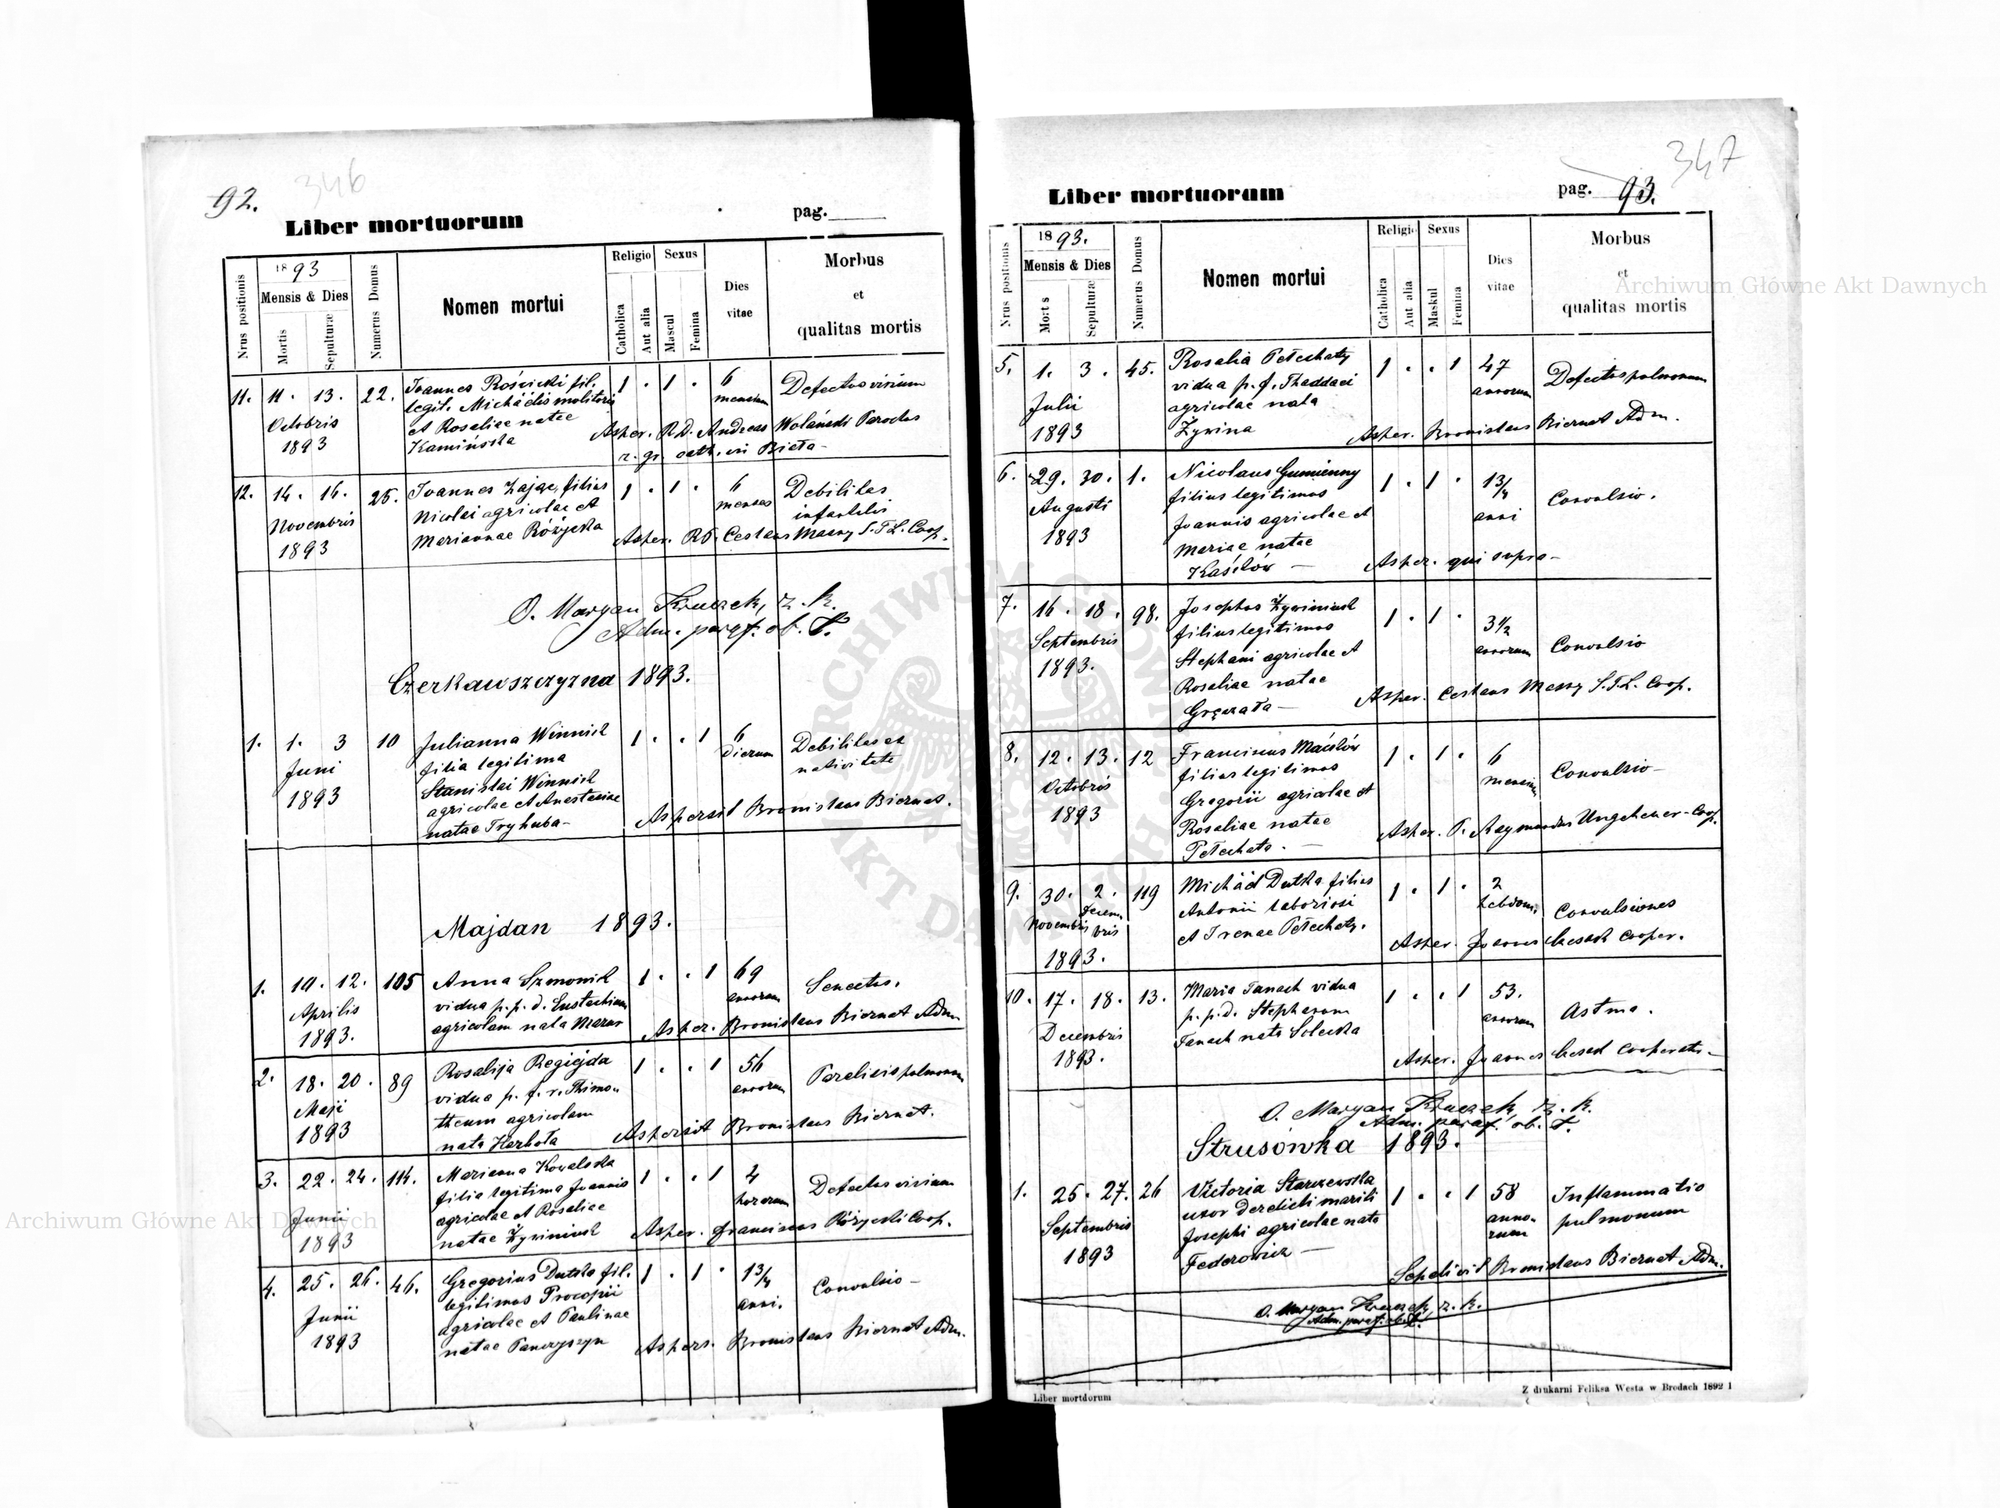 92.
346
Liber mortuorum
pag.
Nrus positionis
1893
Mensis & Dies
Mortis
Sepulturæ
Numerus Domus
Nomen mortui
Religio
Catholica
Aut alia
Sexus
Mascul
Femina
Dies
vitae
Morbus
et
qualitas mortis
11. 11. 13. 22. Joannes Rościcki fil. 1 . 1 . 6 Defectus virium
legit. Michäelis molitoris mensium
Octobris et Rosaliae natae Asper. R.D. Andreas Wolański Parochus
1893 Kamińska r. gr. cath. in Bieła
12. 14. 16. 25. Joannes Zając, filius 1 . 1 . 6 Debilitas
Novembris Nicolai agricolae et menses infantilis
1893 Mariannae Różycka Asper. RP. Ceslaus Massny S.T.L. Coop.
O. Maryan Kruczek, z. k.
Adm. paraf. ob. ł.
Czerkawszczyzna 1893.
1. 1. 3 10 Julianna Winnick 1 . . 1 6 Debilitas et
Juni filia legitima dierum nativitate
1893 Stanislai Winnick
agricolae et Anastasiae Aspersit Bronislaus Biernat.
natae Tryhuba
Majdan 1893.
1. 10. 12. 105 Anna Szmonik 1 . . 1 69 Senectus.
Aprilis vidua p. p. d. Eustachium annorum
1893. agricolam nata Mazur Asper. Bronislaus Biernat Adm.
2. 18. 20. 89 Rosalija Regiejda 1 . . 1 56 Paralisis pulmonum
Maji vidua p. f. r. Thimo- annorum
1893 theum agricolam
nata Harbota Aspersit Bronislaus Biernat.
3. 22. 24. 114. Marianna Kowalska 1 . . 1 4 Defectus virium
Junii filia legitima Joannis horarum
1893 agricolae et Rosaliae Asper. Franciscus Różycki Coop.
natae Żywiniuk
4. 25. 26. 46. Gregorius Dutka fil. 1 . 1 . 1 3/4 Convulsio
Junii legitimus Procopii anni.
1893 agricolae et Paulinae
natae Panczyszyn Aspers. Bronislaus Biernat Adm.
347
Liber mortuorum
pag. 93.
Nrus positionis
1893.
Mensis & Dies
Mort s
Sepulturæ
Numerus Domus
Nomen mortui
Religio
Catholica
Aut alia
Sexus
Maskul
Femina
Dies
vitae
Morbus
et
qualitas mortis
5. 1. 3. 45. Rosalia Pełechaty 1 . . 1 47 Defectus pulmonum
Julii vidua p. f. Thaddaei annorum
1893 agricolae nata
Żywina Asper. Bronislaus Biernat Adm.
6. 29. 30. 1. Nicolaus Gumienny 1 . 1 . 1 3/4 Convulsio.
Augusti filius legitimus anni
1893 Joannis agricolae et
Mariae natae
Kaśków Asper. qui supra
7. 16. 18. 98. Josephus Żywiniuk 1 . 1 . 3 1/2 Convulsio
Septembris filius legitimus annorum
1893. Stephani agricolae et
Rosaliae natae Asper. Ceslaus Massny S.T.L. Coop.
Gręzata
8. 12. 13. 12 Franciscus Maśków 1 . 1 . 6 Convulsio
Octobris filius legitimus mensium
1893 Gregorii agricolae et
Rosaliae natae Asper. P. Raymundus Ungeheuer Coop.
Pełechata.
9. 30. 2. 119 Michäel Dutka filius 1 . 1 . 2 Convulsiones
Novembris Decembris Antonii laboriosi hebdom.
1893. et Irenae Pełechaty. Asper. Joannes Czesak Cooper.
10. 17. 18. 13. Maria Tanach vidua 1 . . 1 53. Astma.
Decembris p. p. d. Stephanum annorum
1893. Tanach nata Solecka
Asper. Joannes Czesak Cooperator
O. Maryan Kruczek, z. k.
Adm. paraf. ob. ł.
Strusówka 1893.
1. 25. 27. 26 Victoria Starzewska 1 . . 1 58 Inflammatio
Septembris uxor derelicti mariti anno- pulmonum
1893 Josephi agricolae nata rum
Federowicz Sepelivit Bronislaus Biernat Adm.
O. Maryan Kruczek, z. k.
Adm. paraf. ob. ł.
Liber mortdorum
Z drukarni Feliksa Westa w Brodach 1892 1
Archiwum Główne Akt Dawnych
Archiwum Główne Akt Dawnych
ARCHIWUM GŁÓWNE AKT DAWNYCH